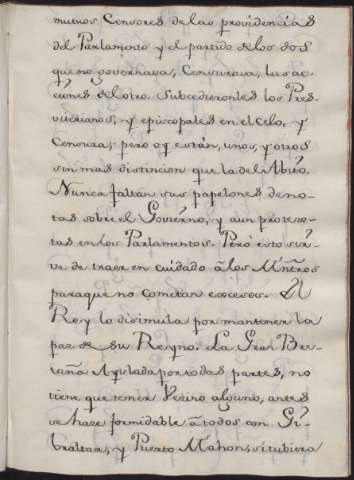 mutuos Censores de las providencias
del Parlamento y el partido de los dos
que no governava, Censurava, las ac-
ciones del otro. Subcedieronles los Pres-
viterianos, y episcopales en el celo, y
Censura; pero oy están, unos, y otros
sin mas distincion que la del Abito.
Nunca faltan sus papelones de no-
tas sobre el Govierno, y aun protes-
tas en los Parlamentos. Pero esto sir-
ve de traer en cuidado â los Mñtros
para que no cometan excesos. El
Rey lo disimula por mantener la
paz de su Reyno. La Gran Bre-
taña Aislada por todas partes, no
tiene que temer Vecino alguno, antes
se hace formidable â todos con Gi-
braltar, y Puerto Mahon, si tubiera